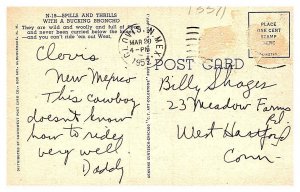 N-18—SPILLS AND THRILLS
WITH A BUCKING BRONCHO
They are wild and woolly and full of
and never been curried below the
—and you can't ride 'em out West.
MAR 20
4-PM
195
PLACE
ONE CENT
STAMP
HERE
POST CARD
Clovis
New Mexico
This cowboy
doesn't know
how to ride
very well.
Daddy
Billy Shages
23 Meadow Farms
Rd.
West Hartford
Conn—